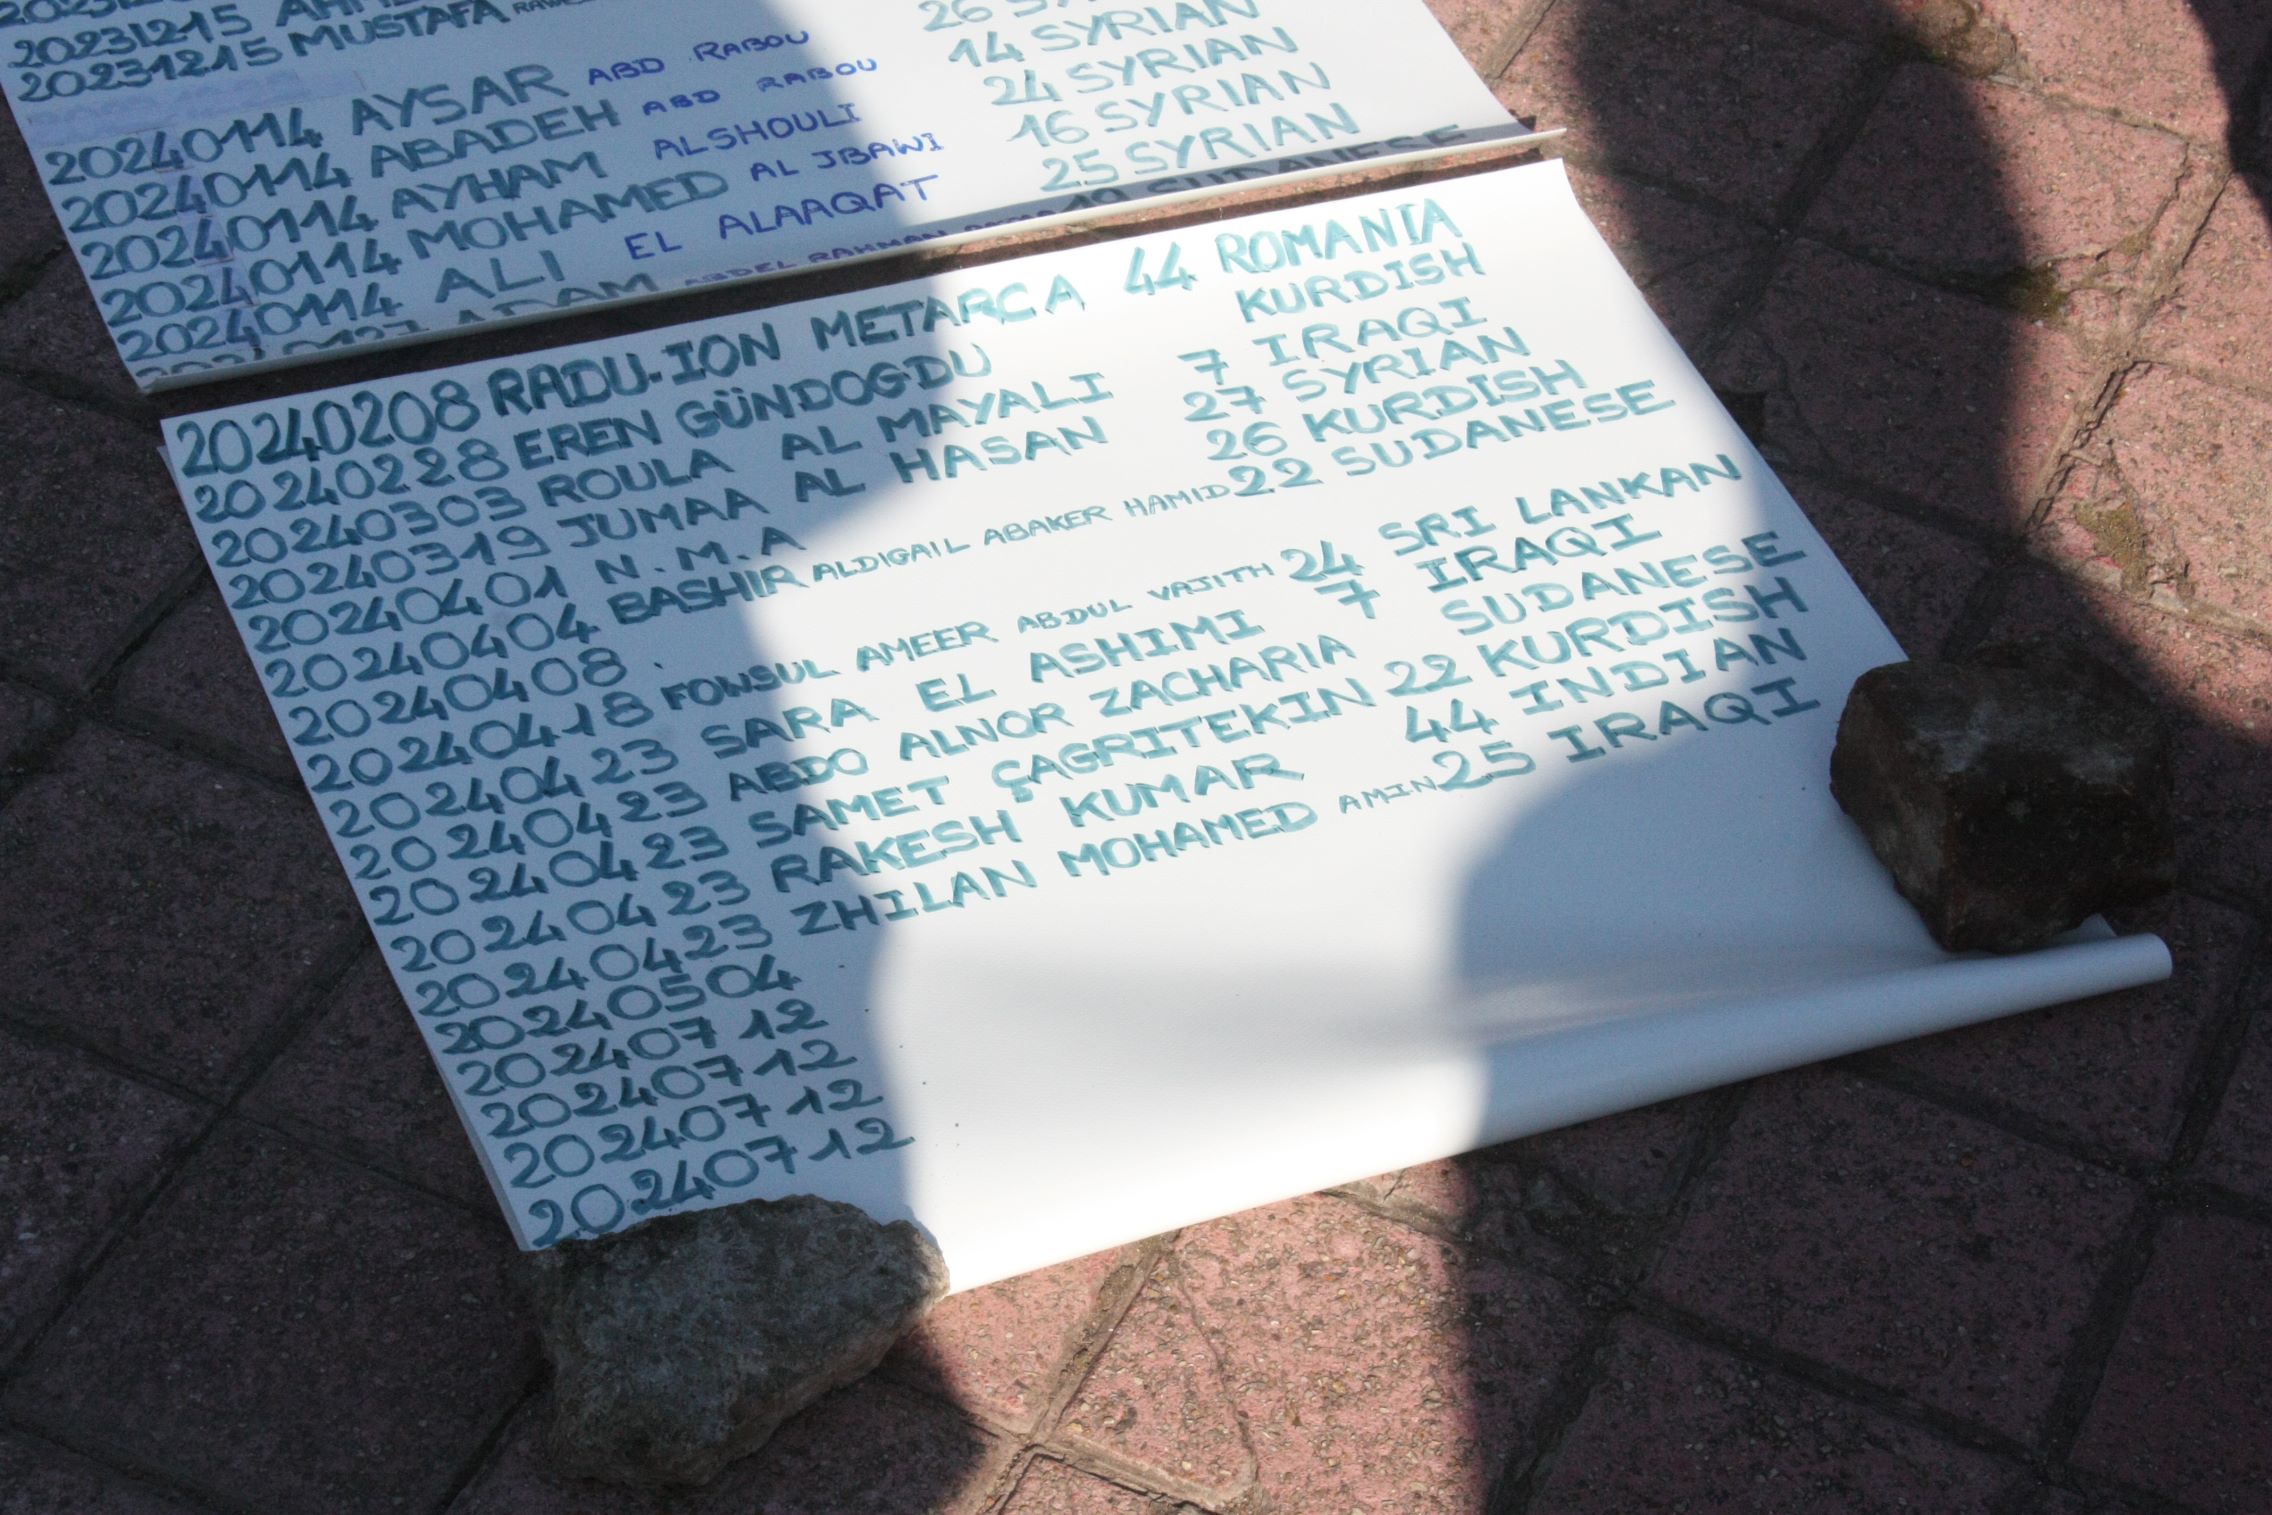 20231215
20231215 MUSTAFA
26
20240114 AYSAR ABD RABOU 14 SYRIAN
20240114 ABADEH ABD RABOU 24 SYRIAN
20240114 AYHAM ALSHOULI 16 SYRIAN
20240114 MOHAMED AL JBAWI 25 SYRIAN
20240114 ALI EL ALAAQAT
ADAM ABDEL RAHMAN SUDANESE
20240208 RADU-ION METARCA 44 ROMANIA
20240228 EREN GÜNDOGDU KURDISH
20240303 ROULA AL MAYALI 7 IRAQI
20240319 JUMAA AL HASAN 27 SYRIAN
20240401 N.M.A 26 KURDISH
20240404 BASHIR ALDIGAIL ABAKER HAMID 22 SUDANESE
20240408
20240418 FONSUL AMEER ABDUL VAJITH 24 SRI LANKAN
20240423 SARA EL ASHIMI 7 IRAQI
20240423 ABDO ALNOR ZACHARIA SUDANESE
20240423 SAMET ÇAGRITEKIN 22 KURDISH
20240423 RAKESH KUMAR 44 INDIAN
20240423 ZHILAN MOHAMED AMIN 25 IRAQI
20240504
20240712
20240712
20240712
20240712